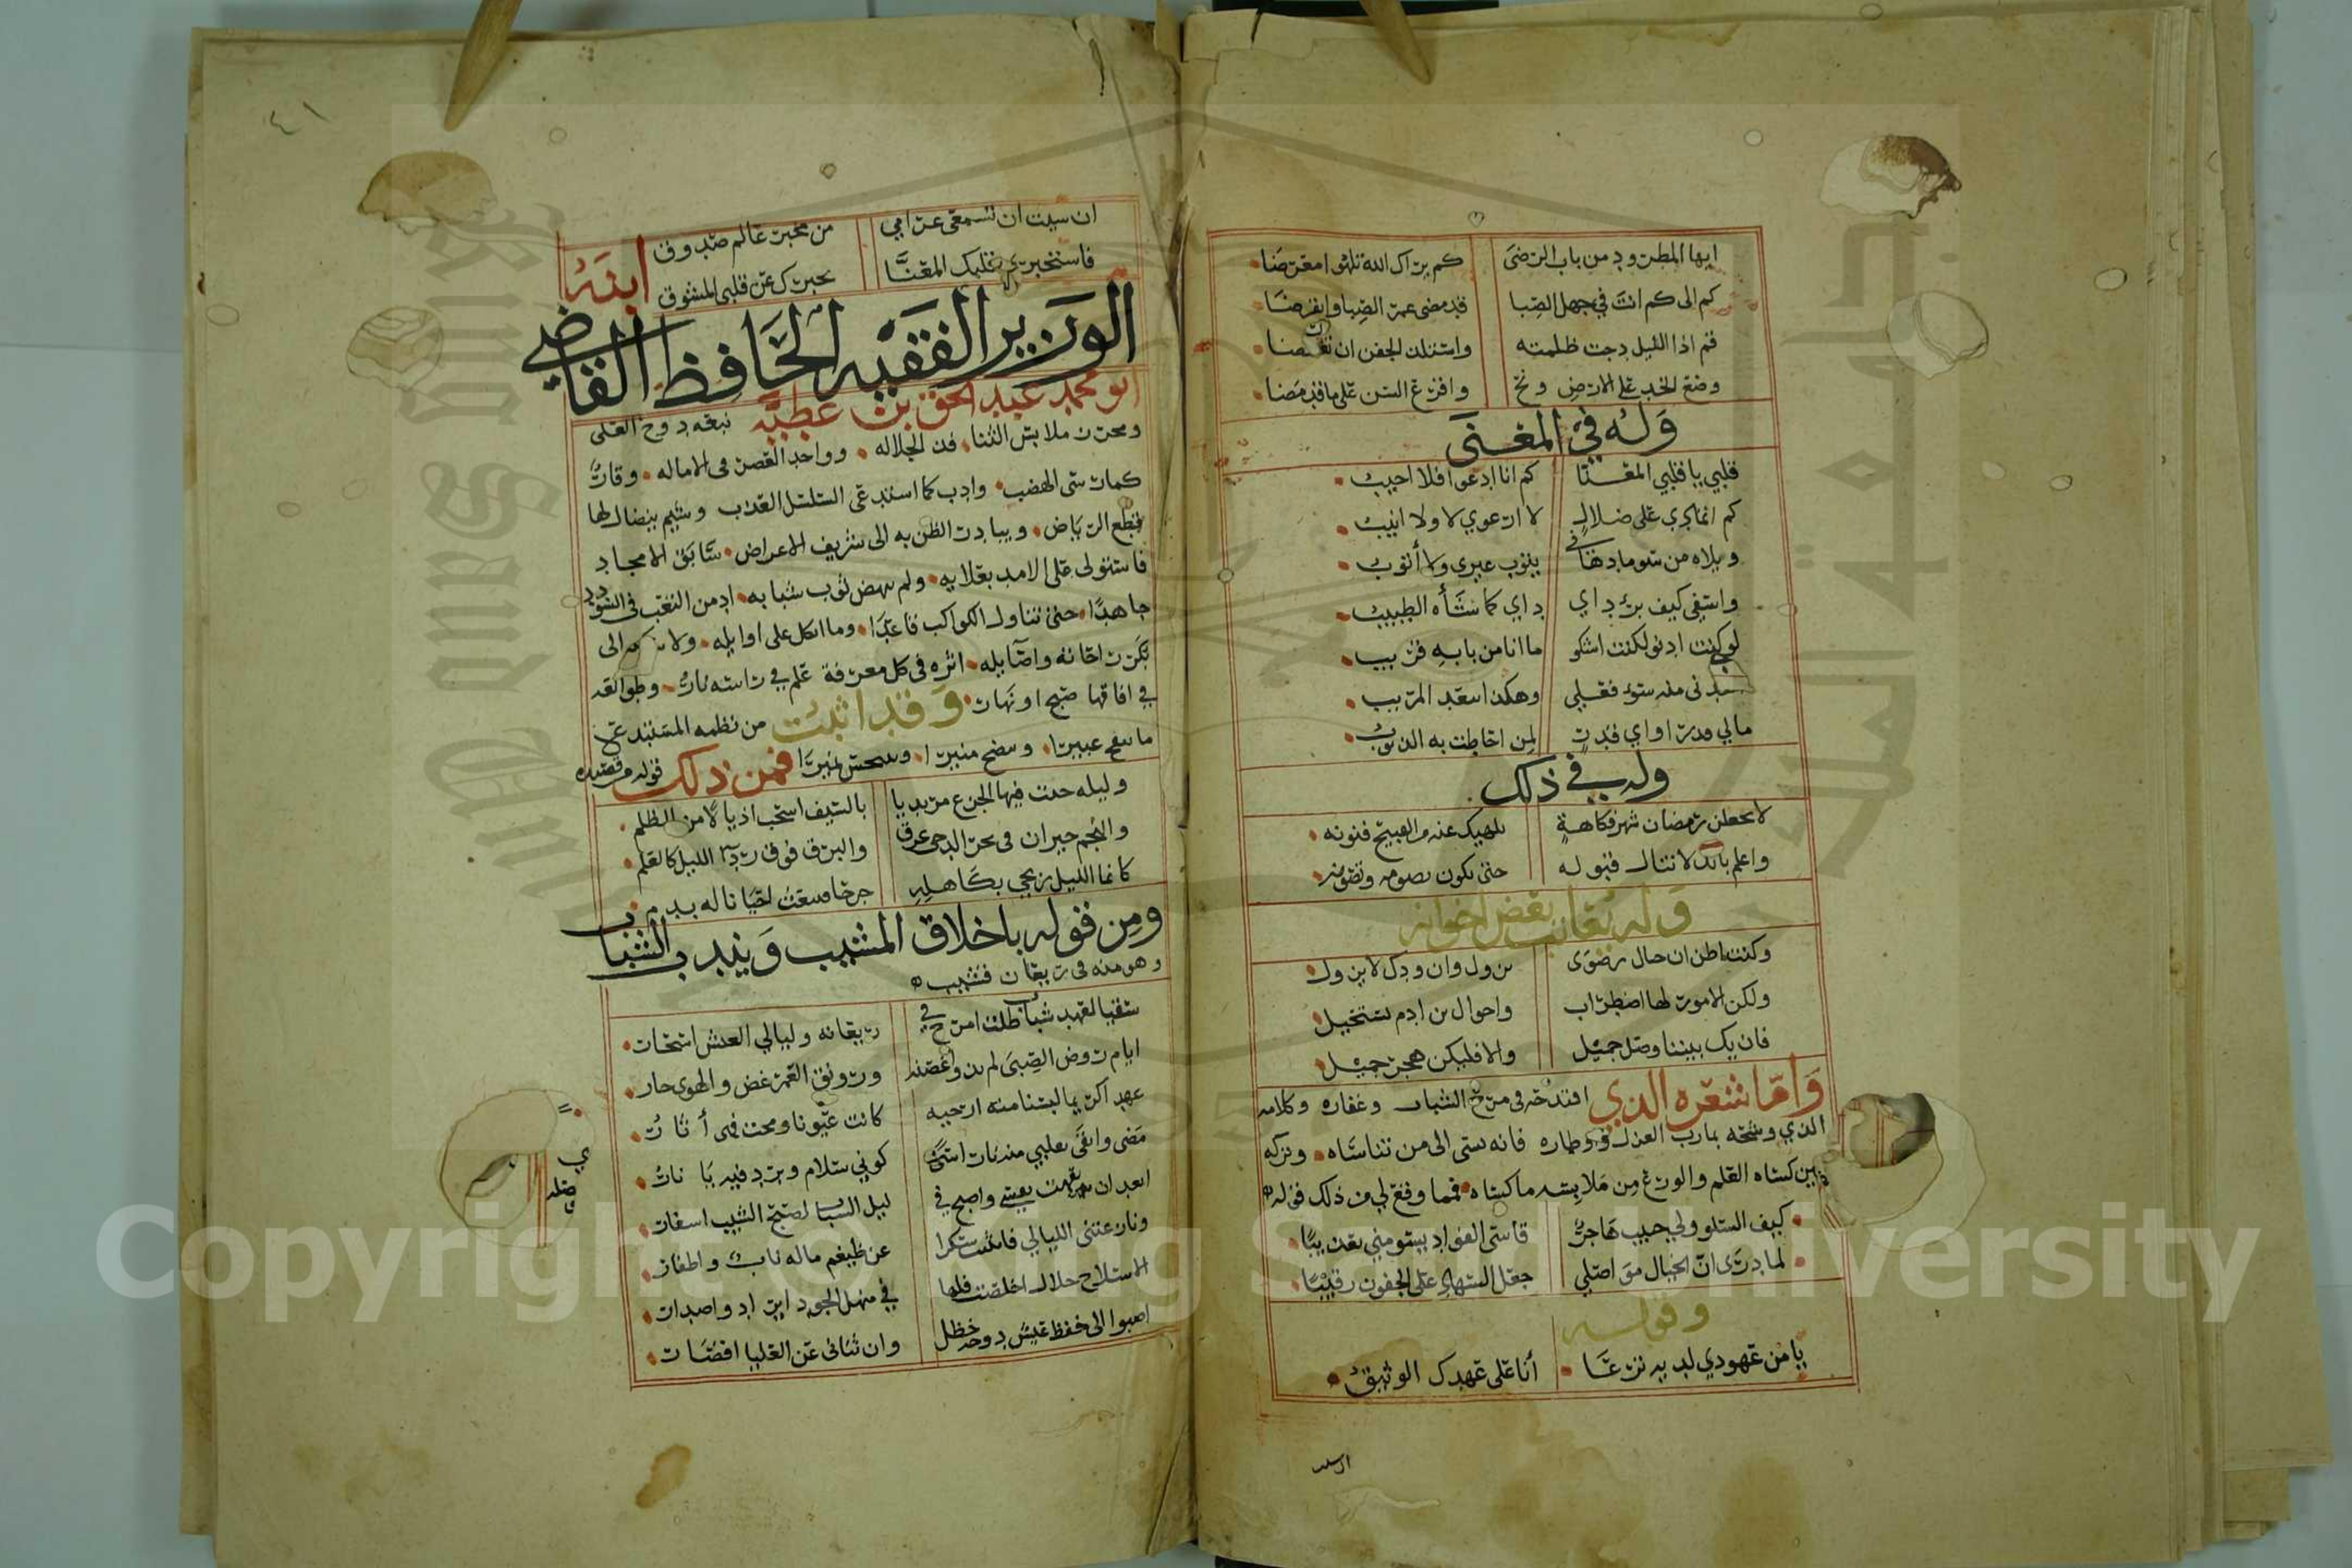 ايها المطرود من باب الرضى كم يراك الله تلهوا معرضا
كم الى كم انت في جهل الصبا قد مضى عمر الصبا وانقرضا
قم اذا الليل دجت ظلمته واستلذ الجفن ان يغتمضا
وضع الخد على الارض ونح واقرع السن على ما قد مضا
وله في المعنى
قلبي يا قلبي المعنا كم انا ادعوا فلا اجيب
كم اتمادى على ضلال لا ارعوي لا ولا انيب
ويلاه من سوء ما دهاني يتوب غيري ولا أتوب
واسفي كيف برء داي داي كما شأه الطبيب
لو كنت ادنو لكنت اشكو ما انا من بابه قريب
ابعدني منه سوء فعلي وهكذا يبعد المريب
مالي قدر او اي قدر لمن احاطت به الذنوب
وله في ذلك
لا تجعلن رمضان شهر فكاهة يلهيك عنه من القبيح فنونه
واعلم بانك لا تنال قبوله حتى تكون تصومه وتصونه
وله يعاتب بعض اخوانه
وكنت اظن ان جبال رضوى تزول وان ودك لا يزول
ولكن الامور لها اضطراب واحوال بن ادم تستحيل
فان يك بيننا وصل جميل والا فليكن هجر جميل
واما شعره الذي اقتدحه في مرخ الشباب وعفاره وكلامه
الذي وشحه بمارب الغزل واوطاره فانه نسى الى من تناساه وتركه
حين كساه العلم والورع من ملابسه ما كساه فمما وقع لي من ذلك قوله
كيف السلو ولي حبيب هاجر قاسى الفؤاد يسومني تعذيبا
لما درى ان الخيال مواصلي جعل السهاد على الجفون رقيبا
وقوله
يا من عهودي لديه ترعا أنا على عهدك الوثيق
ان شيت ان تسمعى غرامي من مخبر عالم صدوق
فاستخبري قلبك المعنا يخبرك عن قلبي المشوق
ابنه
الوزير الفقيه الحافظ القاضي
ابو محمد عبد الحق بن عطيه نبعه دوح العلى
ومحرز ملابس الثنا فذ الجلاله وواحد العصر في الاصاله وقار
كما رسى الهضب وادب كما استدعى السلسل العذب وشيم يتضال لها
قطع الرياض ويبادر الظن به الى شريف الاعراض سابق الامجاد
فاستولى على الامد بغلابه ولم ينض ثوب شبابه ادمن التعب في السودد
جاهدا حتى تناول الكواكب قاعدا وما اتكل على اوايله ولا سكن الى
بكر راحاته واصايله اثره في كل معرفة علم في راسه نار وطوالعه
في افاقها صبح او نهار وقد اثبت من نظمه المستبدع
ما ينفح عبيرا ويتضح منيرا ويسحن نميرا فمن ذلك قوله من قصيده
وليله جبت فيها الجزع مرتديا بالسيف اسحب اذيالا من الظلم
والنجم حيران في بحر الدجى غرق والبرق فوق ردآ الليل كالعلم
كانما الليل زنجي بكاهله جرح فيثعب احيانا له بدم
ومن قوله باخلاق المشيب ويندب الشباب
وهو منه في ريعان قشيب
سقيا لعهد شباب ظلت امرح في ريعانه وليالي العيش اسحار
ايام روض الصبى لم تذو اغصنه ورونق العمر غض والهوى جار
مضى وابقى بقلبي منه نار اسى كوني سلام وبرد فيه يا نار
ابعد ان نعمت نفسي واصبح في ليل الشباب لصبح الشيب اسفار
ونازعتني الليالي فانثنت كسرا عن ضيغم ماله ناب واظفار
الا سلاح خلال اخلصت فلها في منهل الجود ايراد واصدار
اصبوا الى خفض عيش دوحه خظل وان ثنانى عن العليا اقصار
٤١